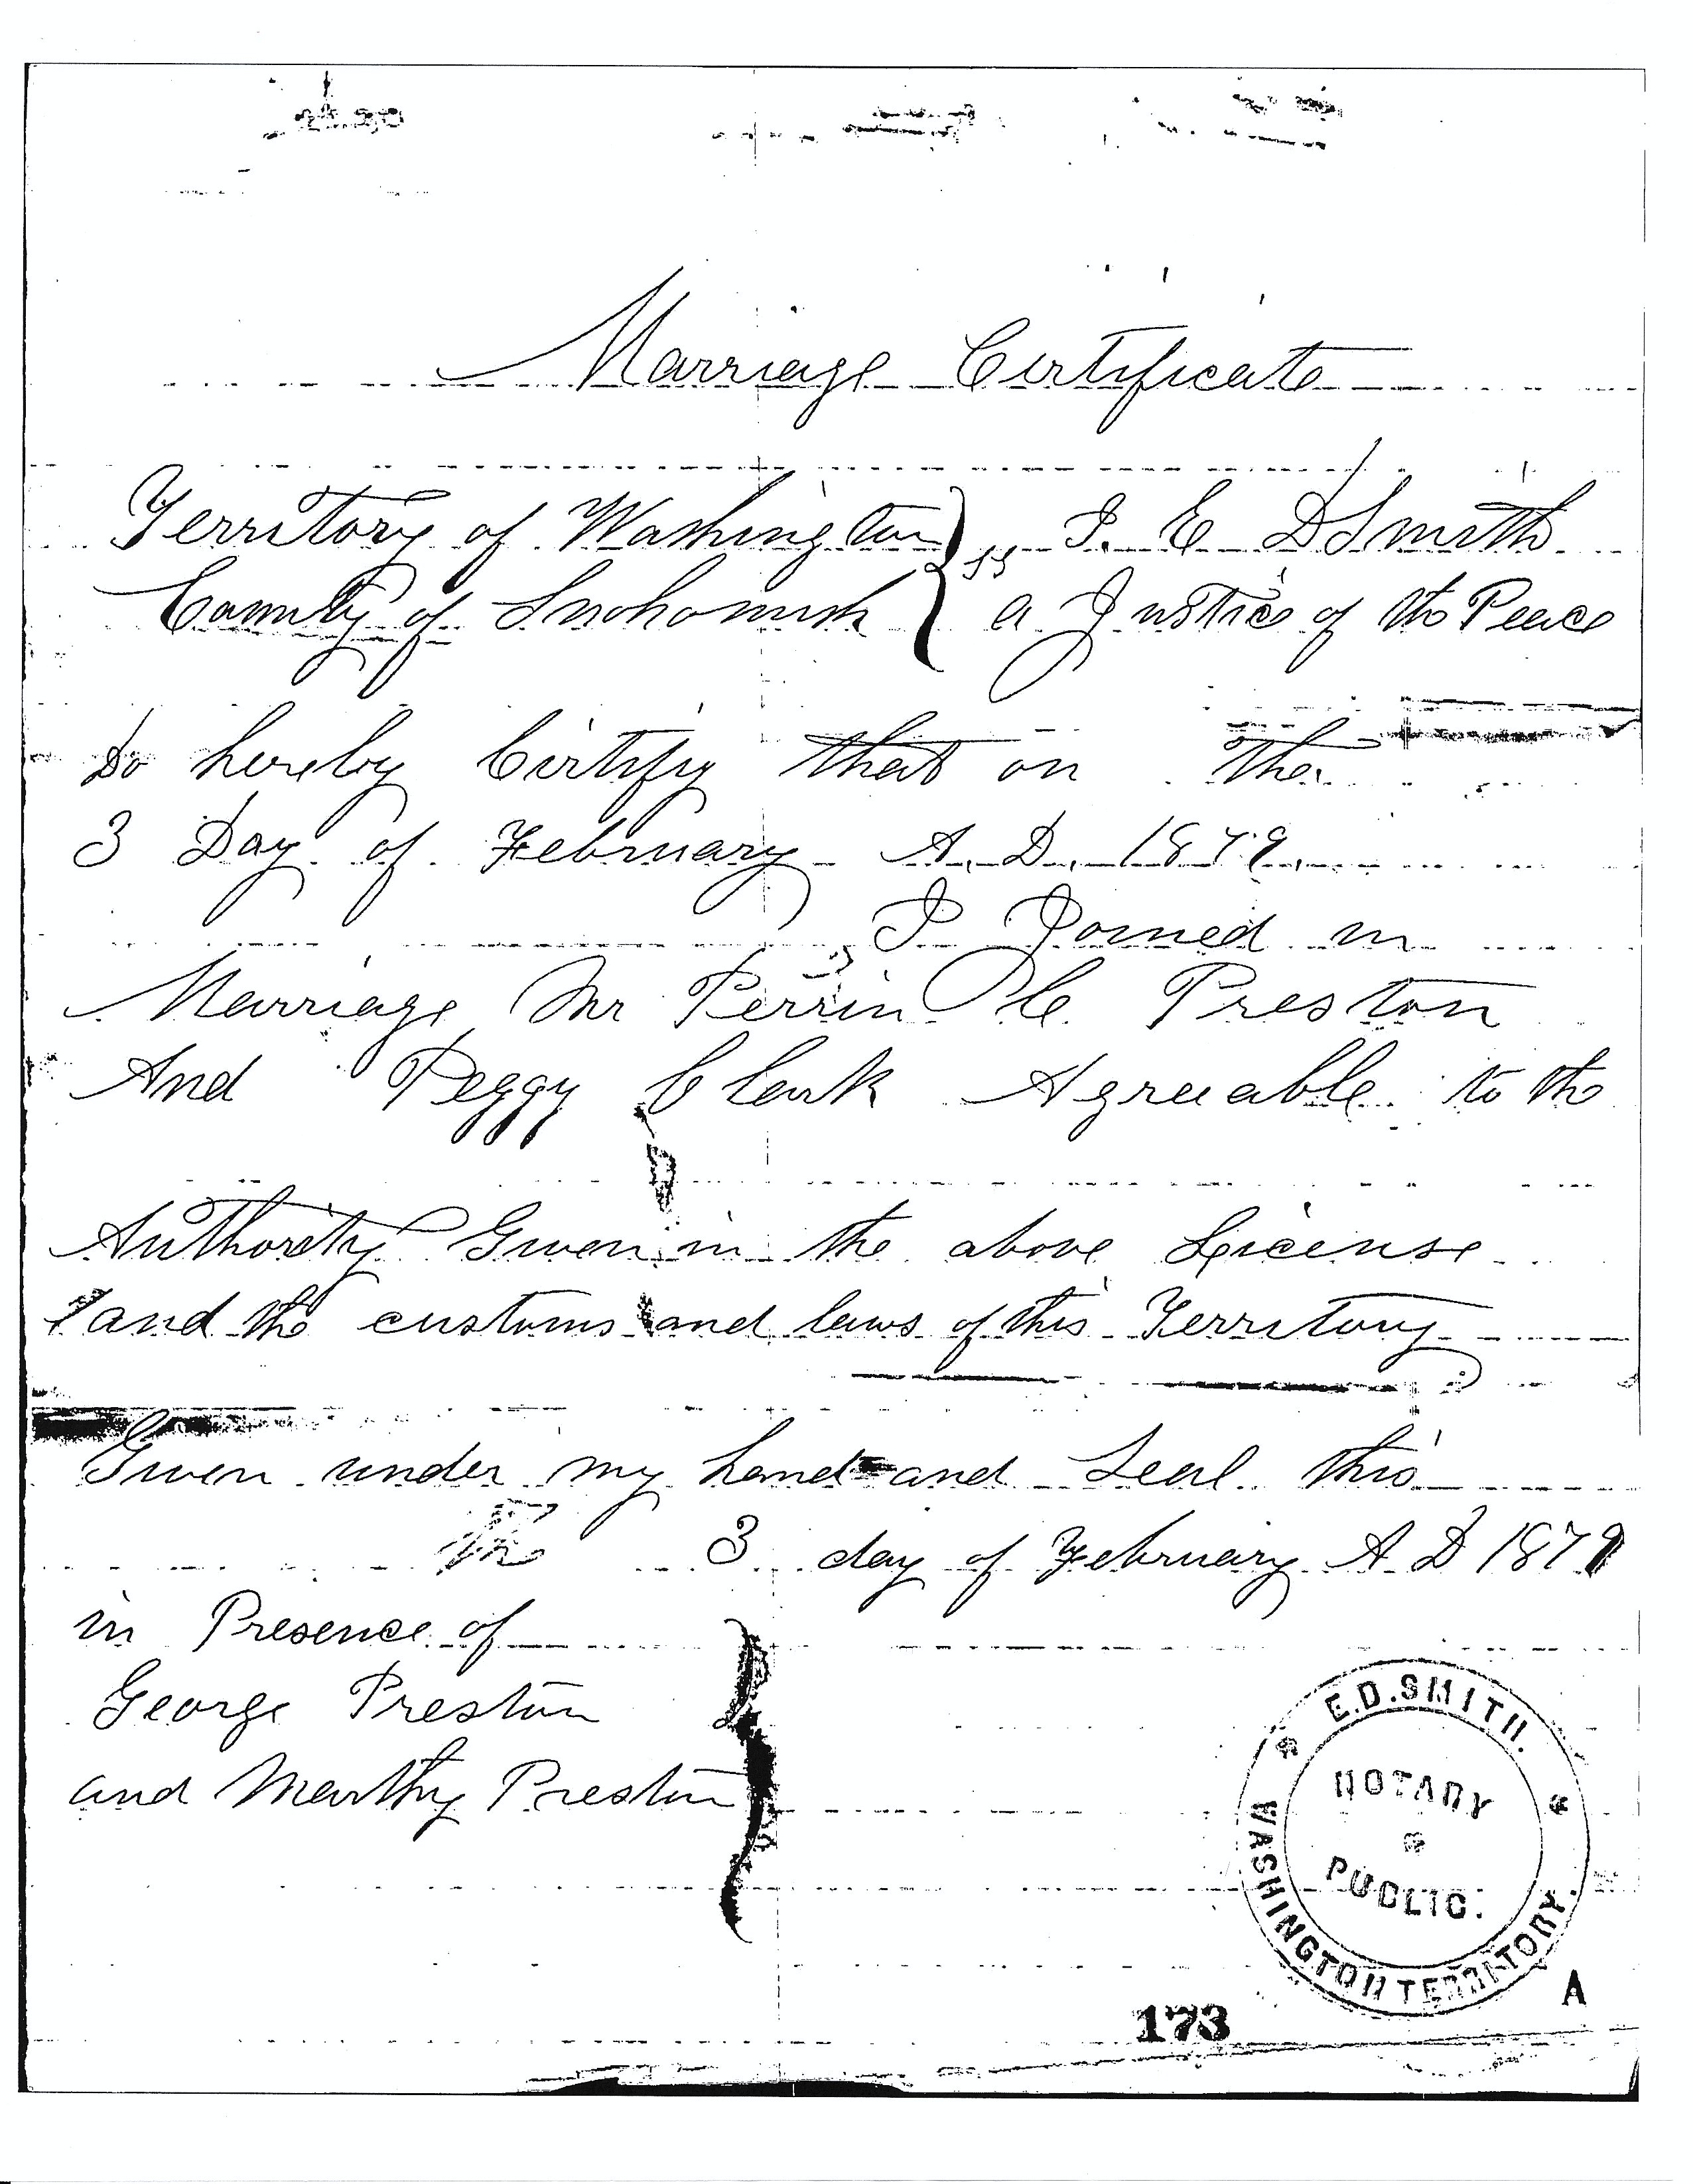 Marriage Certificate
Territory of Washington } ss I. E D Smith
County of Snohomish } a Justice of the Peace
Do hereby Certify that on the
3 Day of February A. D. 1879.
I Joined in
Marriage Mr Perrin C. Preston
And Peggy Clark Agreeable to the
Authority Given in the above License
and the customs and laws of this Territory
Given under my hand and Seal this
the 3 day of February A D 1879
in Presence of
George Preston
and Marthy Preston
E.D. SMITH.
NOTARY
PUBLIC.
WASHINGTON TERRITORY.
A
173